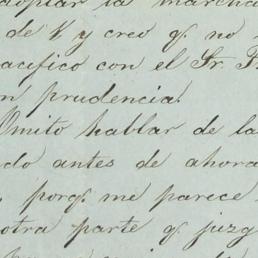 adoptar la marcha
de V y creo q. no
acifico con el Sr. F
n prudencia.
Omito hablar de la
do antes de ahora
porq. me parece
otra parte q. juzg